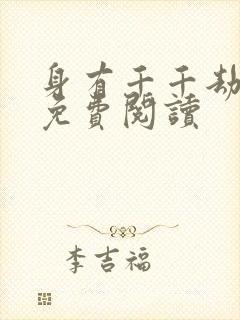 身有千千劫
免費閱讀
李吉福